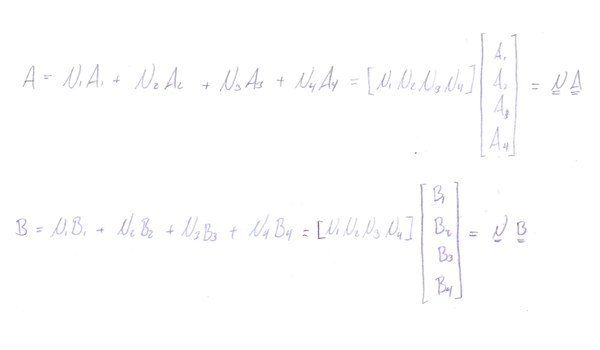 A = N₁A₁ + N₂A₂ + N₃A₃ + N₄A₄ = [N₁ N₂ N₃ N₄] [A₁ A₂ A₃ A₄] = N A
B = N₁B₁ + N₂B₂ + N₃B₃ + N₄B₄ = [N₁ N₂ N₃ N₄] [B₁ B₂ B₃ B₄] = N B